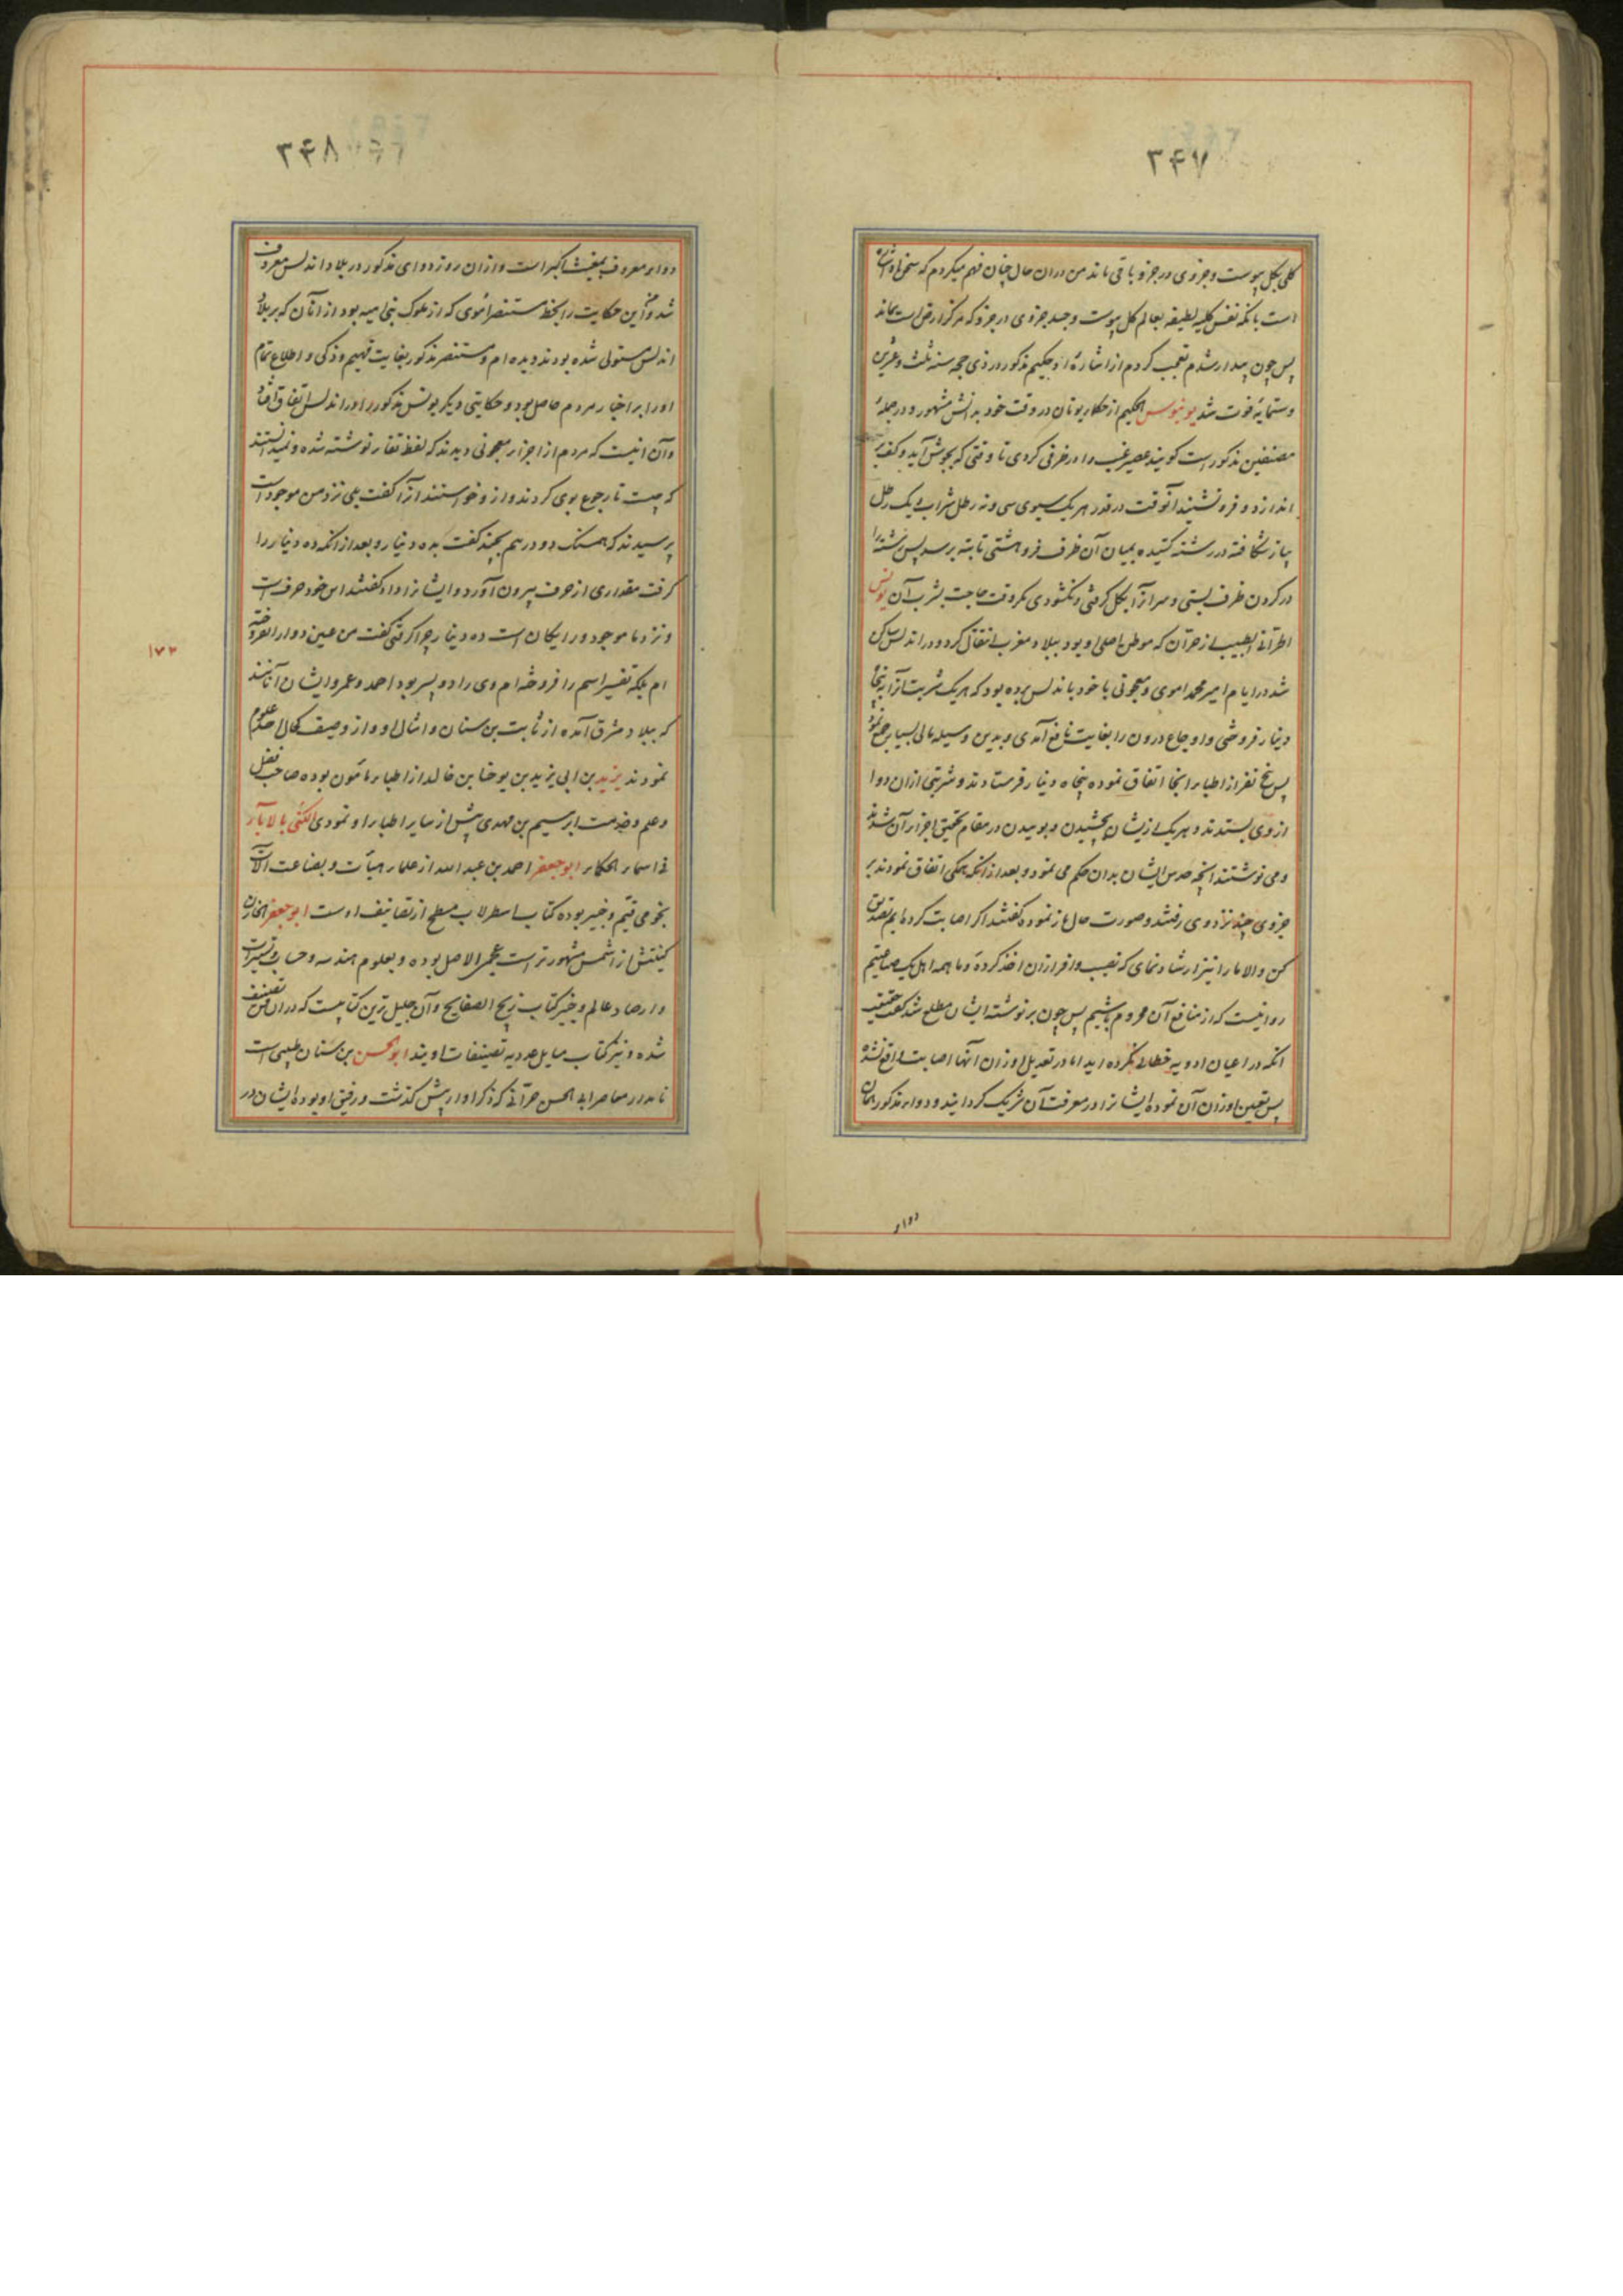 ۳۴۷
کلی بکل پیوست و جزوی در جزو باقی ماند من دران حال چنان فهم میکردم که سخن او اشاره
است بانکه نفس کلیه لطیفه بعالم کل پیوست و جسد جزوی در جزو که مرکز ارض است بماند
پس چون بیدار شدم تعجب کردم از اشارهٔ او حکیم مذکور در ذی حجه سنه ثلث و عشرین
و ستمایة فوت شد یونیوس الحکیم از حکماء یونان در وقت خود بدانش مشهور و در جملهٔ
مصنفین مذکور است کویند عصیر عنب را در ظرفی کردی تا وقتی که بجوش آید و کف بر
اندازد و فرو نشیند آنوقت در قدر هر یک سبوی سی و نه رطل شراب یک رطل
پیاز شکافته در رشته کشیده بمیان آن ظرف فرو هشتی تا بته برسد پس رشته را
در کردن ظرف بستی و سر آنرا بکل کرفتی و نکشودی مکر وقت حاجت بشرب آن یونس
الحرانی الطبیب از حران که موطن اصلی او بود ببلاد مغرب انتقال کرد و در اندلس ساکن
شد در ایام امیر محمد اموی و معجونی با خود باندلس برده بود که هر یک شربت آنرا به پنجاه
دینار فروختی و اوجاع درون را بغایت نافع آمدی و بدین وسیله مالی بسیار جمع نمود
پس پنج نفر از اطباء انجا اتفاق نموده پنجاه دینار فرستادند و شربتی ازان دوا
از وی بستدند و هر یک از یشان بچشیدن و بوییدن در مقام تحقیق اجزاء آن شدند
و می نوشتند انچه حدس ایشان بدان حکم می نمود و بعد از انکه همکی اتفاق نمودند بر
جزوی چند نزد وی رفتند و صورت حال باز نموده کفتند اکر اصابت کرده‌ایم تصدیق
کن و الا ما را نیز ارشاد نمای که نصیب وافر ازان اخذ کردهٔ و ما همه اهل یک صناعتیم
روا نیست که از منافع آن محروم باشیم پس چون بر نوشته ایشان مطلع شد کفت حقیقت
انکه در اعیان ادویه خطائی نکرده اید اما در تعدیل اوزان آنها اصابت واقع نشده
پس تعیین اوزان آن نموده ایشانرا در معرفت آن شریک کردانید و دواء مذکور همان
دواء
۳۴۸
دواء معروف بمغیث اکبر است و ازان روز دوای مذکور در بلاد اندلس معروف
شد و من این حکایت را بخط مستنصر اموی که از ملوک بنی امیه بود از انان که بر بلاد
اندلس مستولی شده بودند دیده ام و مستنصر مذکور بغایت فهیم و ذکی و اطلاع تمام
او را بر اخبار مردم حاصل بود و حکایتی دیکر یونس مذکور را در اندلس اتفاق افتاد
و آن انیست که مردم از اجزاء معجونی دیدند که لفظ تفار نوشته شده و نمیدانستند
که چیست تا رجوع بوی کردند و ازو خواستند آنرا کفت بلی نزد من موجود است
پرسیدند که همسنک دو درهم بچند کفت بده دینار و بعد از انکه ده دینار را
کرفت مقداری از حرف بیرون آورد و ایشانرا داد کفتند این خود حرف است
و نزد ما موجود و رایکان است ده دینار چرا کرفتی کفت من عین دوا را نفروخته
ام بلکه تفسیر اسم را فروخته ام وی را دو پسر بود احمد و عمر و ایشان آنانند
که ببلاد مشرق آمده از ثابت بن سنان و امثال او و از وصیف کحال اخذ علوم
نمودند یزید بن ابی یزید بن یوحنا بن خالد از اطباء مامون بوده صاحب فضل
و علم و خدمت ابرهیم بن مهدی پیش از سایر اطباء او نمودی الکنی بالاباء
فی اسماء الحکماء ابو جعفر احمد بن عبد الله از علماء هیأت و بصناعت الات
نجومی قیم و خبیر بوده کتاب اسطرلاب مسطح از تصانیف اوست ابو جعفر الخازن
کنیتش از اسمش مشهورتر است عجمی الاصل بوده و بعلوم هندسه و حساب و تسییرات
و ارصاد عالم و خبیر کتاب زیج الصفایح و آن جلیل ترین کتابیست که دران فن تصنیف
شده و نیز کتاب مسایل عددیه تصنیفات اویند ابو الحسن بن سنان طبیبی است
نامدار معاصر ابی الحسن حرّانی که ذکر او از پیش کذشت و رفیق او بوده ایشان در
۱۷۳